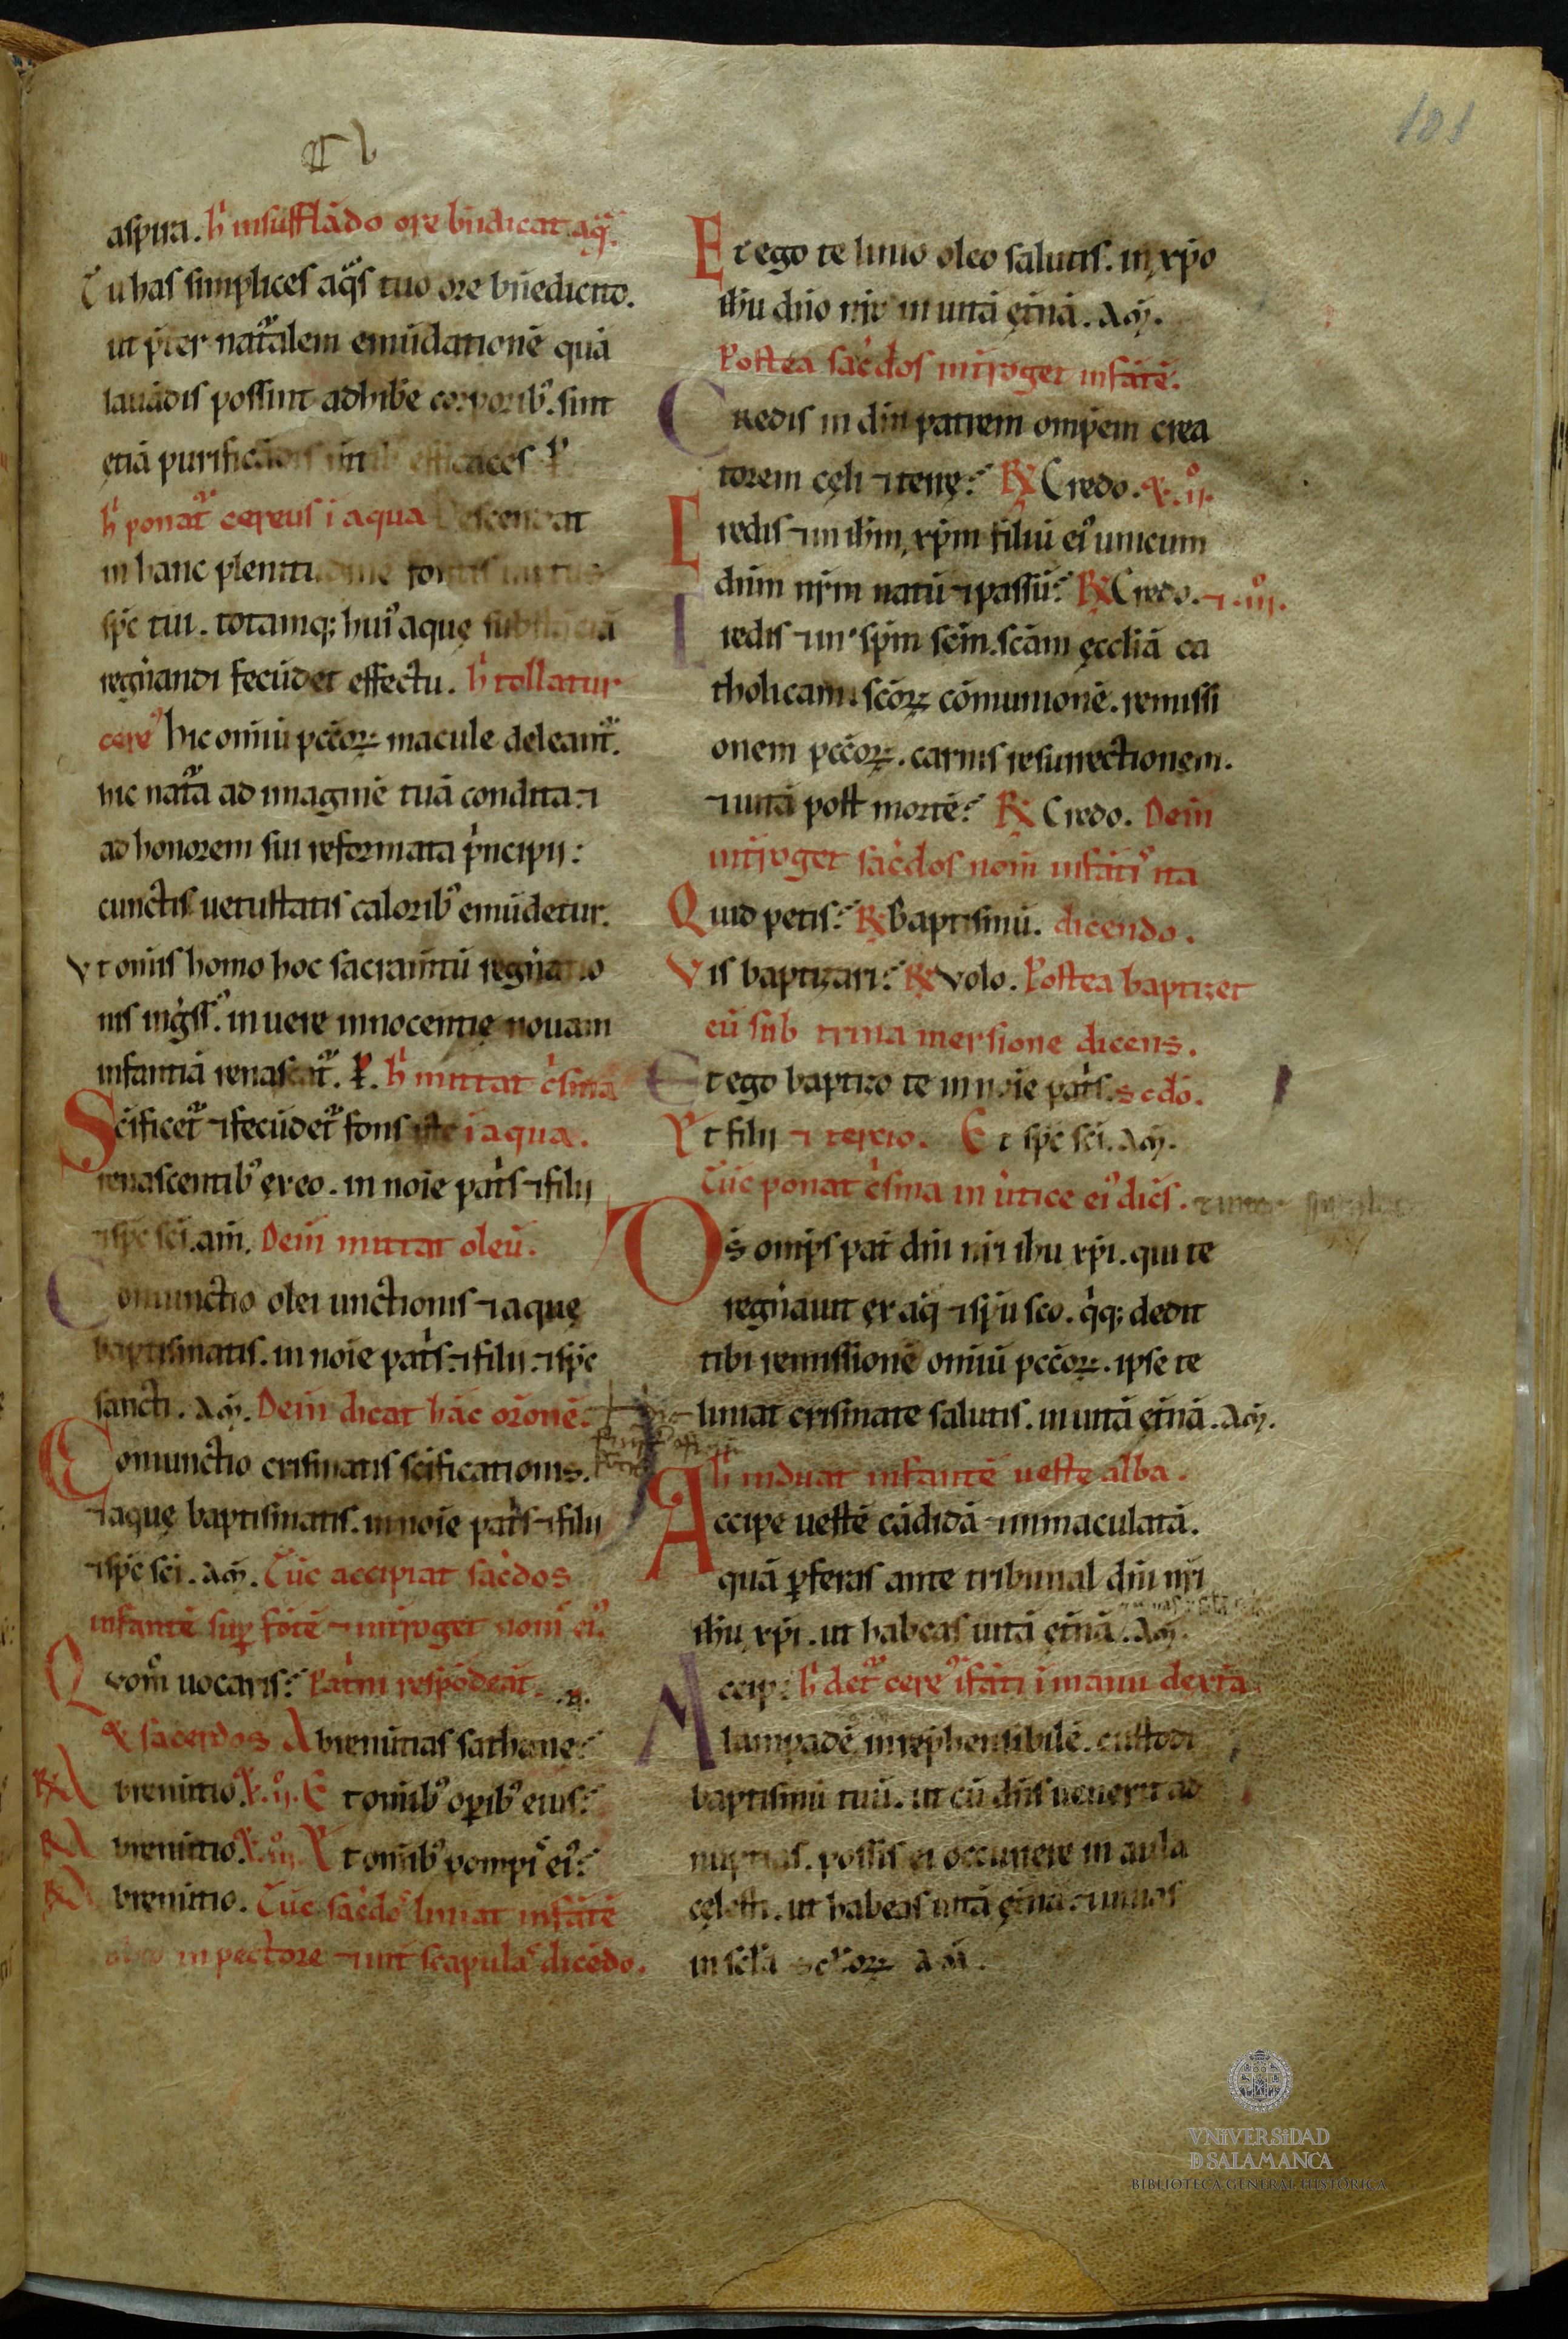 101
aspira. h̄ insufflādo ore bn̄dicat aq̄.
Tu has simplices aq̄s tuo ore bn̄edicito.
ut p̄ter nat̄alem emūdationē quā
lauādis possunt adhib̄e corporib᷒. sint
ętiā purificādis m̄tib᷒ efficaces. P
h̄ ponat᷑ cereus i aqua Descendat
in hanc plenitudinē fontis uirtus
sp̄c tui. totamq; hui᷒ aquę substāciā
regn̄andi fecūdet effectu. h̄ tollatur
cere᷒ hic omiū pcc̄oꝝ macule deleant᷑.
hic nat᷑a ad imaginē tuā condita ⁊
ad honorem sui reformata p̄ncipii:
cunctis uetustatis caloribꝰ emūdetur.
Vt om̄is homo hoc sacram̄tū regn̄atio
nis inḡss᷒. in uere innocentię nouam
infantiā renascat᷑. P. h̄ mittat c̄sma
Scīficet᷑ ⁊ fecūdet᷑ fons iste i aqua.
renascentib᷒ ex eo. in noīe pat̄s ⁊ filii
⁊ sp̄c sc̄i. am̄. Dein̄ mittat oleū.
Coniunctio olei unctionis ⁊ aquę
baptismatis. in noīe pat̄s ⁊ filii ⁊ sp̄c
sancti. Am̄. Dein̄ dicat hāc orōnē.
Coniunctio crismatis scīficationis.
⁊ aquę baptismatis. in noīe pat̄s ⁊ filii
⁊ sp̄c sc̄i. Am̄. Tūc accipiat sac̄dos
infantē suꝑ fōtē ⁊ int̄roget nom̄ ei᷒.
Quom̊ uocaris? Pat̄ni respōdeāt.
sacerdos Abrenūtias sathanę?
R Abrenūtio. ij. Et omīb᷒ oꝑib᷒ eius?
R Abrenūtio. iij. Et omīb᷒ pompis ei᷒?
R Abrenūtio. Tūc sac̄dos liniat infātē
oleo in pectore ⁊ int̄ scapulas dicēdo.
Et ego te linio oleo salutis. in xp̄o
ih̄u dn̄o nr̄o in uitā ęt̄nā. Am̄.
Postea sac̄dos int̄roget infātē.
Credis in dm̄ patrem omp̄em crea
torem cęli ⁊ terrę? R Credo. ij.
Credis ⁊ in ih̄m xp̄m filiū ei᷒ unicum
dn̄m nr̄m natū ⁊ passū? R Credo. ⁊ iij.
Credis ⁊ in sp̄m sc̄m. sc̄am ęccliā ca
tholicam. sc̄oꝝ cōmunionē. remissi
onem pcc̄oꝝ. carnis resurrectionem.
⁊ uitā post mortē? R Credo. Dein̄
int̄roget sac̄dos nom̄ infāti᷒ ita
Quid petis? R Baptismū. dicendo.
Vis baptizari? R Volo. Postea baptizet
eū sub trina mersione dicens.
Et ego baptizo te in noīe pat̄s. scdō.
Et filii ⁊ tercio. Et sp̄c sc̄i. Am̄.
Tūc ponat c̄sma in ūtice ei᷒ dic̄s.
Ds̄ omp̄s pat̄ dn̄i nr̄i ih̄u xp̄i. qui te
regn̄auit ex aq̄ ⁊ sp̄u sc̄o. q̄q; dedit
tibi remissionē omiū pcc̄oꝝ. ipse te
liniat crismate salutis. in uitā ęt̄nā. Am̄.
h̄ induat infantē ueste alba.
Accipe uestē cādidā ⁊ immaculatā.
quā ꝑferas ante tribunal dn̄i nr̄i
ih̄u xp̄i. ut habeas uitā ęt̄nā. Am̄.
Accip̄: h̄ det᷑ cere᷒ ifāti i manu dext̄a.
lampadē irrep̄hensibilē. custodi
baptismū tuū. ut cū dn̄s uenerit ad
nuptias. possis ei occurrere in aula
cęlesti. ut habeas uitā ęt̄nā. ⁊ uiuas
in sc̄la sc̄loꝝ Am̄.
VNIVERSIDAD
D SALAMANCA
BIBLIOTECA GENERAL HISTÓRICA